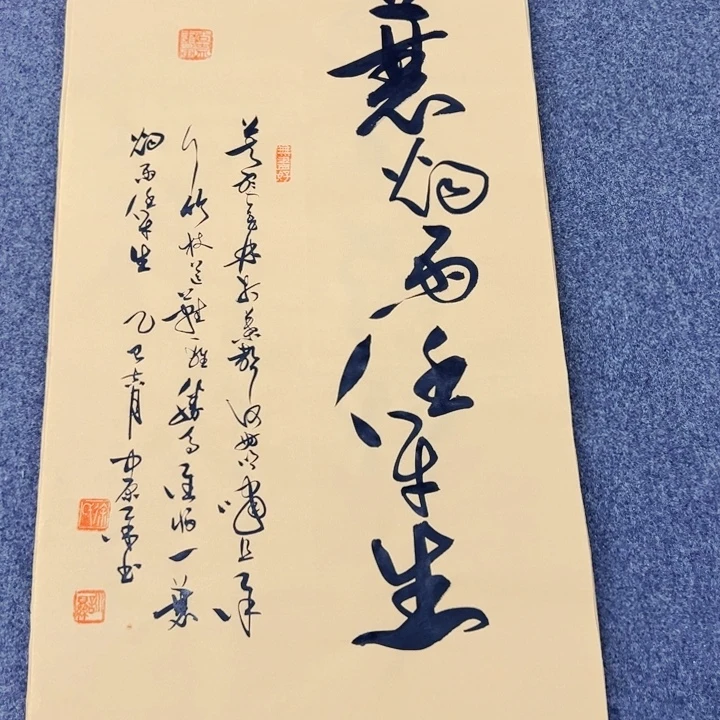 蓑烟雨任平生
莫听穿林打叶声何妨吟啸且徐
行竹杖芒鞋轻胜马谁怕一蓑
烟雨任平生 乙巳六月 中原书